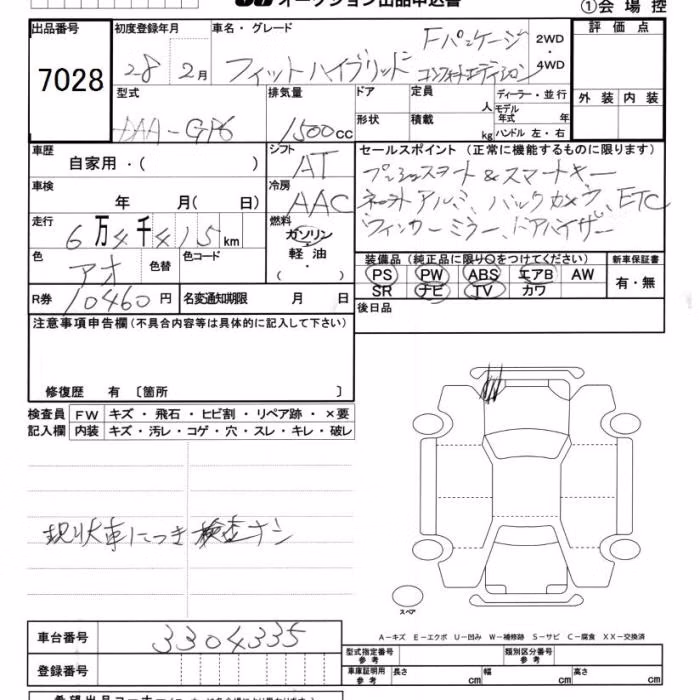 オークション出品申込書
①会場控
出品番号 初度登録年月 車名・グレード 評価点
7028 28 2月 フィットハイブリッド Fパッケージ コンフォートエディション 2WD・4WD
外装 内装
型式 排気量 ドア 定員 人 ディーラー・並行
DAA-GP6 1500cc 形状 積載 kg モデル年式 年 ハンドル 左・右
車歴 シフト セールスポイント (正常に機能するものに限ります)
自家用・( ) AT プッシュスタート&スマートキー
車検 冷房 アルミ、バックカメラ、ETC
年 月( 日) AAC ウィンカーミラー、ドアバイザー
走行 燃料
6万4千415km ガソリン・軽油・( )
色 色替 色コード 装備品(純正品に限り○をつけてください) 新車保証書
アオ PS PW ABS エアB AW 有・無
SR ナビ TV カワ
R券 10460円 名変通知期限 月 日 後日品
注意事項申告欄(不具合内容等は具体的に記入して下さい)
修復歴 有 〔箇所 〕
検査員記入欄 FW キズ・飛石・ヒビ割・リペア跡・×要
内装 キズ・汚レ・コゲ・穴・スレ・キレ・破レ
現状車につき検査ナシ
スペア
A−キズ E−エクボ U−凹み W−補修跡 S−サビ C−腐食 XX−交換済
車台番号 3304335
型式指定番号 参考 類別区分番号 参考
登録番号 車庫証明用 参考 長さ cm 幅 cm 高さ cm